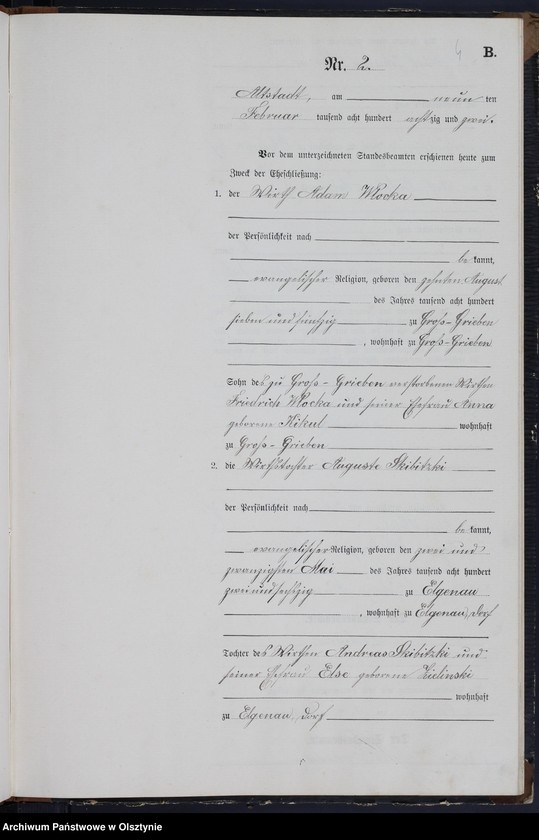 4 B.
Nr. 2.
Altstadt, am neun ten
Februar tausend acht hundert achtzig und zwei.
Vor dem unterzeichneten Standesbeamten erschienen heute zum
Zweck der Eheschließung:
1. der Wirth Adam Wlocka
der Persönlichkeit nach
be kannt,
evangelischer Religion, geboren den zehnten August
des Jahres tausend acht hundert
sieben und fünfzig zu Groß-Grieben
, wohnhaft zu Groß-Grieben
Sohn des zu Groß-Grieben verstorbenen Wirthen
Friedrich Wlocka und seiner Ehefrau Anna
geborene Kikul wohnhaft
zu Groß-Grieben
2. die Wirthstochter Auguste Skibitzki
der Persönlichkeit nach
be kannt,
evangelischer Religion, geboren den zwei und
zwanzigsten Mai des Jahres tausend acht hundert
zwei und sechzig zu Elgenau
, wohnhaft zu Elgenau, Dorf
Tochter des Wirthen Andreas Skibitzki und
seiner Ehefrau Else geborene Zulinski
wohnhaft
zu Elgenau, Dorf
Archiwum Państwowe w Olsztynie